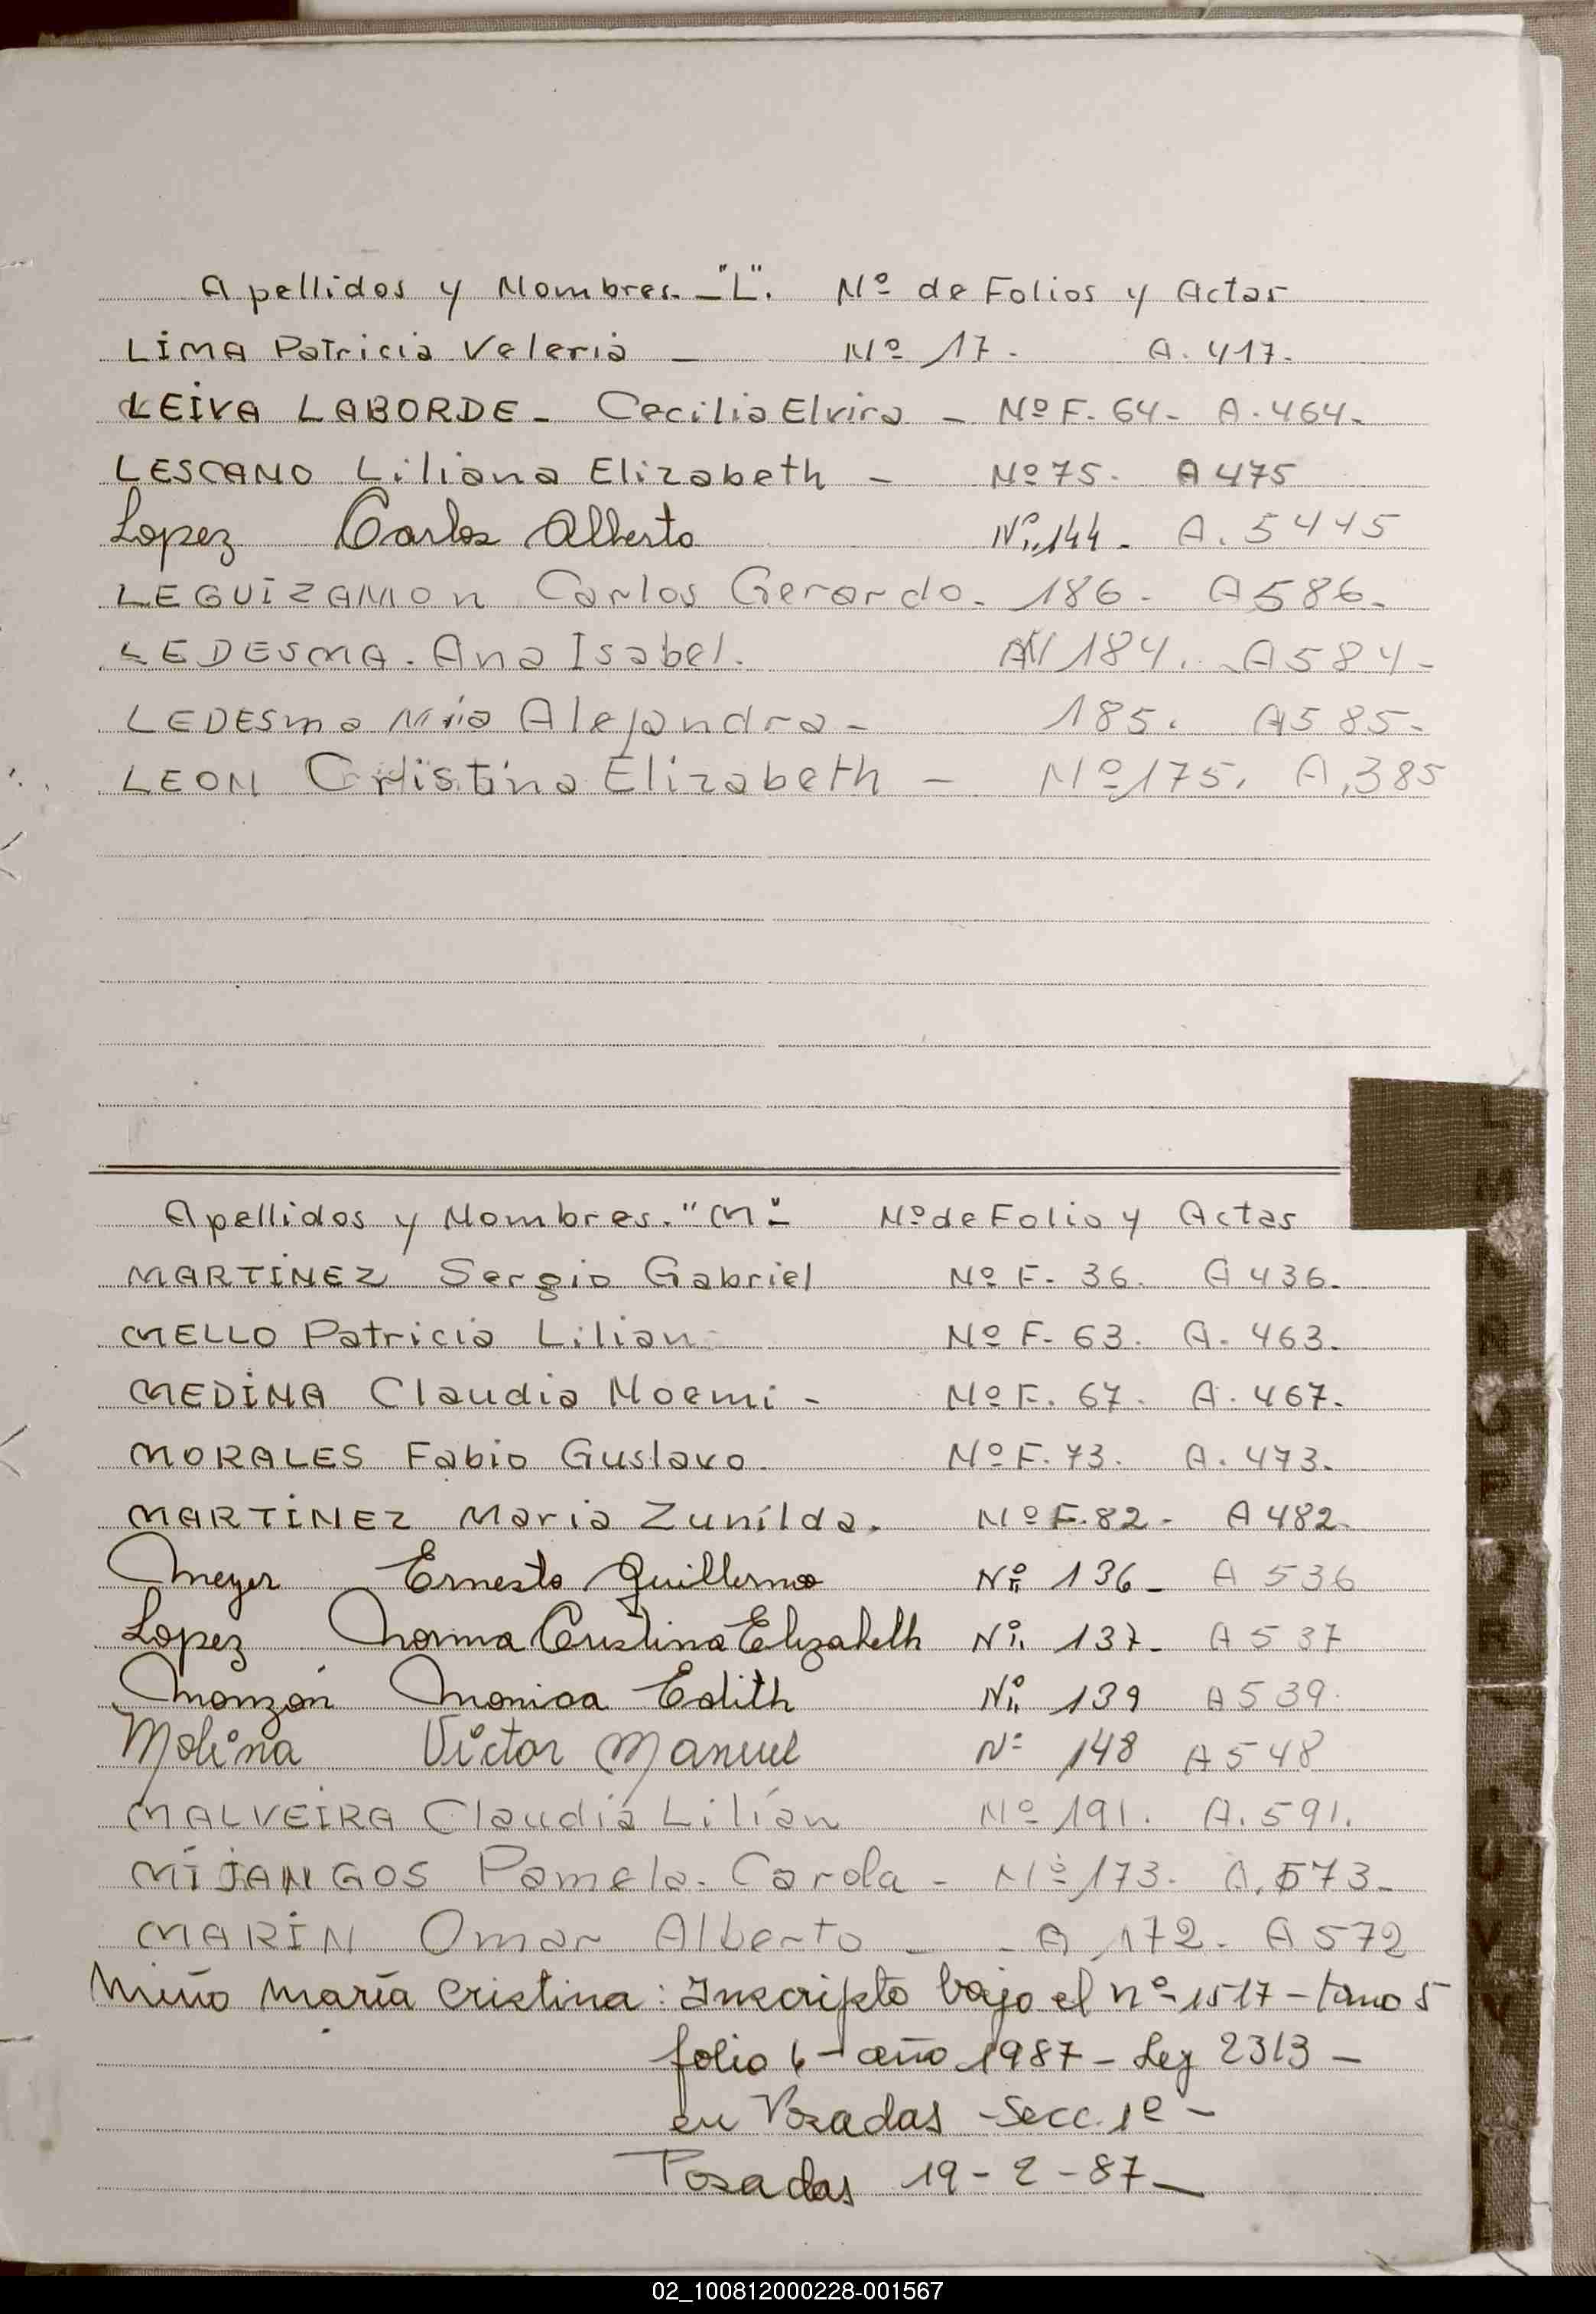 Apellidos y Nombres. - "L". Nº de Folios y Actas
LIMA Patricia Valeria - Nº 17. A. 417.
LEIVA LABORDE - Cecilia Elvira - Nº F. 64 - A. 464 -
LESCANO Liliana Elizabeth - Nº 75. A 475
Lopez Carlos Alberto Nº 144 - A. 5445
LEGUIZAMON Carlos Gerardo. 186 - A 586 -
LEDESMA. Ana Isabel. 184. A 584 -
LEDESMa Alejandra - 185. A 585 -
LEON Cristina Elizabeth - Nº 175. A. 385
Apellidos y Nombres. "M" - Nº de Folio y Actas
MARTINEZ Sergio Gabriel Nº F. 36. A 436.
MELLO Patricia Lilian Nº F. 63. A. 463.
MEDINA Claudia Noemi - Nº F. 67. A. 467.
MORALES Fabio Gustavo Nº F. 73. A. 473.
MARTINEZ Maria Zunilda. Nº F. 82 - A 482
Meyer Ernesto Guillermo Nº 136 - A 536
Lopez Norma Cristina Elizabeth Nº 137 - A 537
Monzón Monica Edith Nº 139 A 539
Molina Victor Manuel Nº 148 A 548
MALVEIRA Claudia Lilían Nº 191. A. 591.
MIJANGOS Pamela. Carola - Nº 173. A. 573 -
MARIN Omar Alberto - - A 172. A 572
Miño María Cristina: Inscripto bajo el nº 1517 - tomo 5
folio 6 - año 1987 - Ley 2313 -
en Posadas - Secc. 1º -
Posadas 19 - 2 - 87 -
L
M
N
Ñ
O
P
Q
R
U
V
02_100812000228-001567